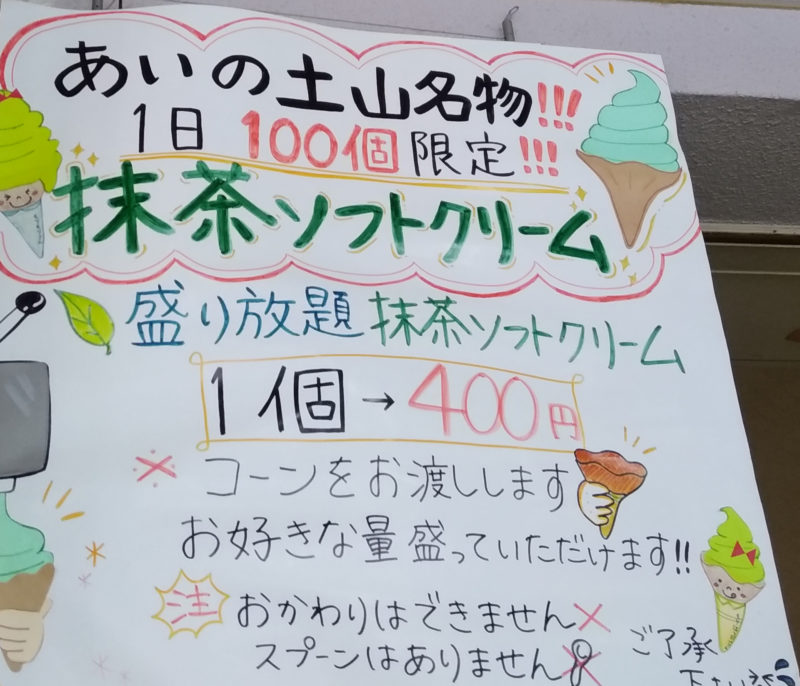 あいの土山名物!!!
1日 100個限定!!!
抹茶ソフトクリーム
盛り放題抹茶ソフトクリーム
1個→400円
※ コーンをお渡しします
お好きな量盛っていただけます!!
注 おかわりはできません×
スプーンはありません
ご了承
下さいませ